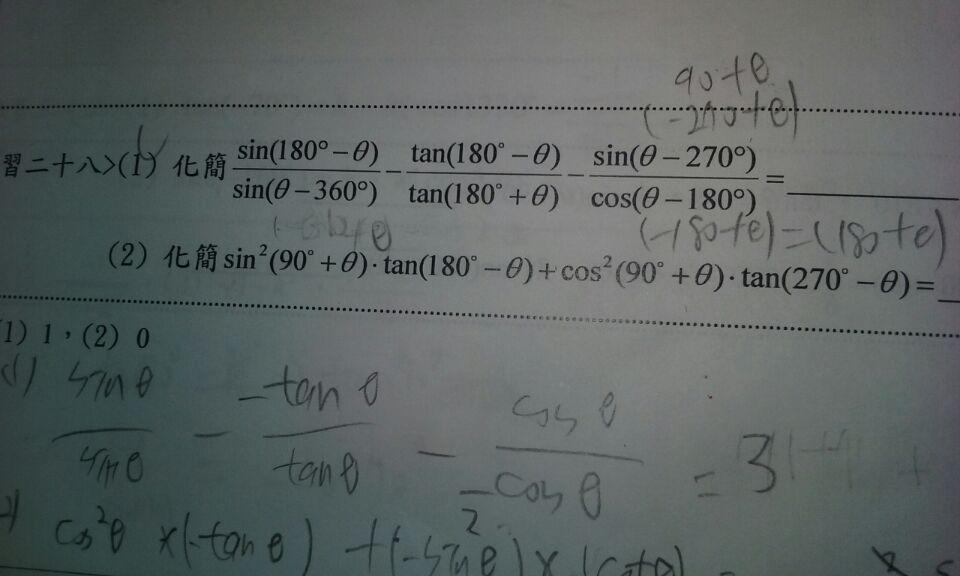 90+θ
(-270+θ)
習二十八>(1) 化簡 sin(180°−θ)/sin(θ−360°) − tan(180°−θ)/tan(180°+θ) − sin(θ−270°)/cos(θ−180°) =
(-180+θ)=(180+θ)
(2) 化簡 sin²(90°+θ)·tan(180°−θ)+cos²(90°+θ)·tan(270°−θ)=
1) 1，(2) 0
(1) sinθ/sinθ − -tanθ/tanθ − cosθ/-cosθ = 3
cos²θ ×(-tanθ) +(-sin²θ)×(cotθ) =